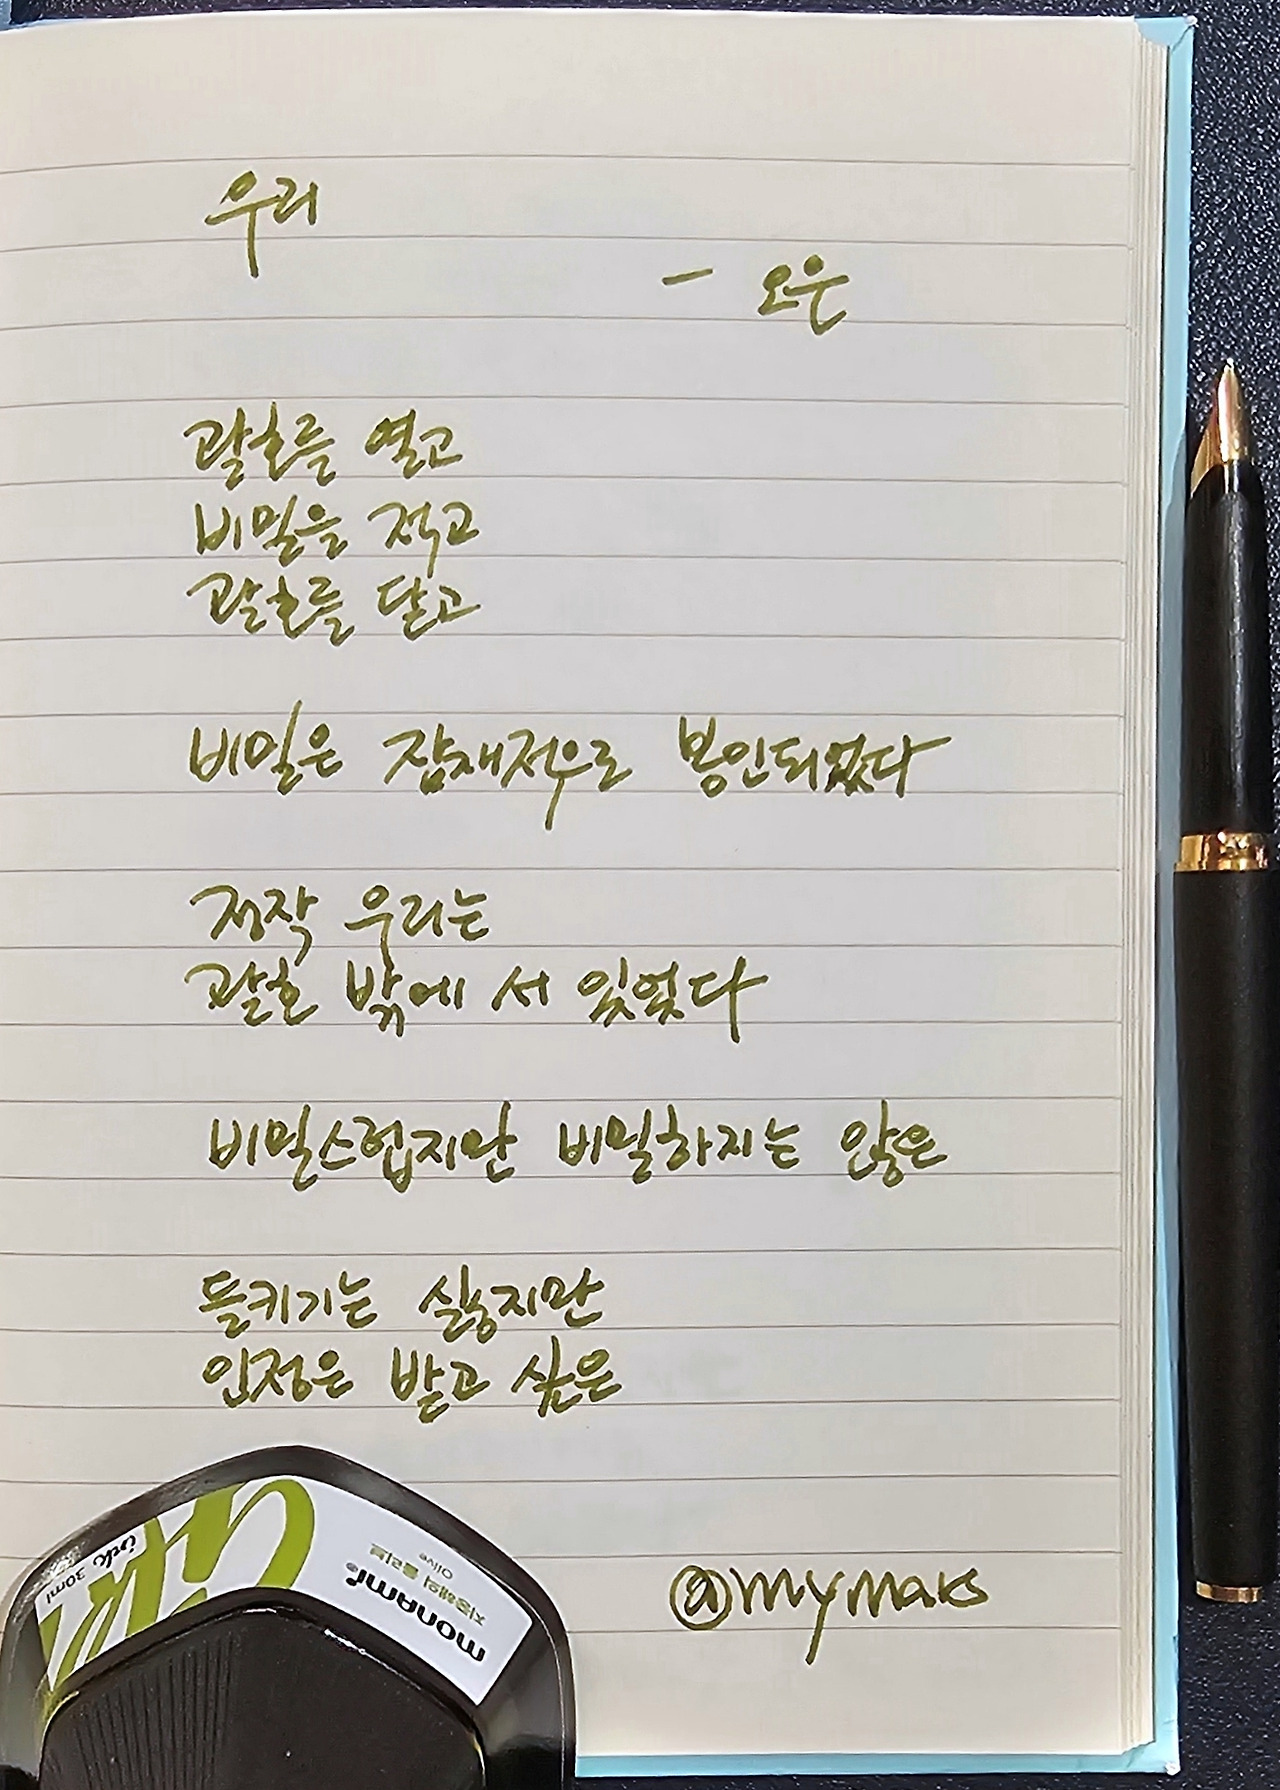 우리
- 오은
괄호를 열고
비밀을 적고
괄호를 닫고
비밀은 잠재적으로 봉인되었다
정작 우리는
괄호 밖에 서 있었다
비밀스럽지만 비밀하지는 않은
들키기는 싫지만
인정은 받고 싶은
@mymars
monami
지중해의 올리브
Olive
ink 30ml